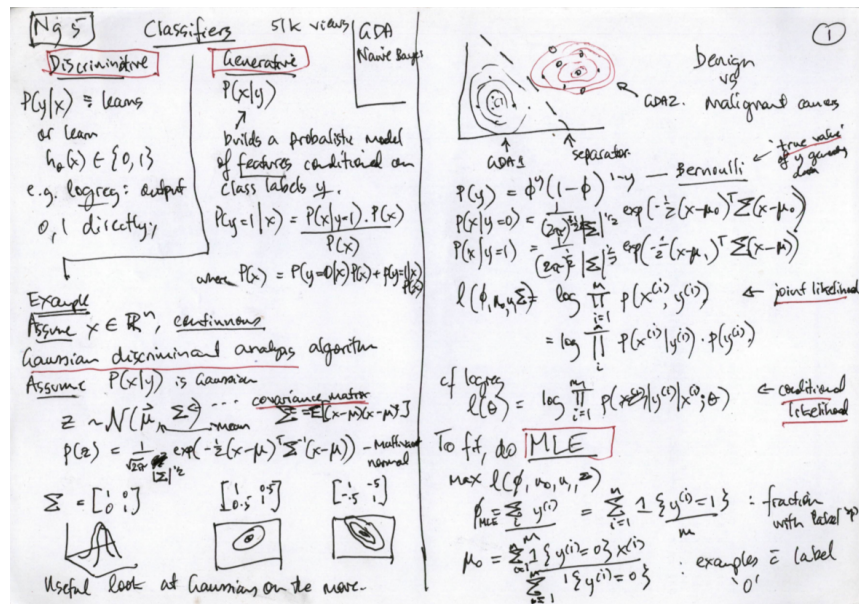 Ng 5
Classifiers
51k views
GDA
Naive Bayes
Discriminitive
P(y|x) = learns
or learn
h_θ(x) ∈ {0,1}
e.g. logreg: output
0, 1 directly;
Generative
P(x|y)
builds a probalistic model
of features conditional on
class labels y.
P(y=1|x) = P(x|y=1) · P(x) / P(x)
where P(x) = P(y=0|x) P(x) + P(y=1|x) P(x)
Example
Assume x ∈ ℝⁿ, continuous
Gaussian discriminant analysis algorithm
Assume P(x|y) is Gaussian
z ~ N(μ⃗, Σ) covariance matrix Σ = E[(x-μ)(x-μ)ᵀ]
mean
p(z) = 1/(√2π |Σ|^½) exp(-½(x-μ)ᵀ Σ⁻¹(x-μ)) – Multivariate
normal
Σ = [1 0; 0 1] [1 0.5; 0.5 1] [1 -.5; -.5 1]
Useful look at Gaussians on the move.
1
benign
vs
malignant cancers
GDA2.
GDA1
separator
P(y) = φ^y (1-φ)^(1-y) — Bernoulli
true value
P(x|y=0) = 1/((2π)^½ |Σ|^½) exp(-½(x-μ₀)ᵀ Σ(x-μ₀))
P(x|y=1) = 1/((2π)^½ |Σ|^½) exp(-½(x-μ₁)ᵀ Σ(x-μ))
l(φ, μ₀, μ, Σ) = log ∏_{i=1}^m p(x^(i), y^(i)) ← joint likelihood
= log ∏_i^m p(x^(i)|y^(i)) · p(y^(i))
cf logreg
l(θ) = log ∏_{i=1}^m p(y^(i)|x^(i); θ) ← conditional
likelihood
To fit, do MLE
max l(φ, μ₀, μ₁, Σ)
φ_MLE = Σ_i^m y^(i) / m = Σ_{i=1}^m 1{y^(i)=1} / m : fraction
with label
μ₀ = Σ_{i=1}^m 1{y^(i)=0} x^(i) / Σ_{i=1}^m 1{y^(i)=0} : examples c̄ label
'0'